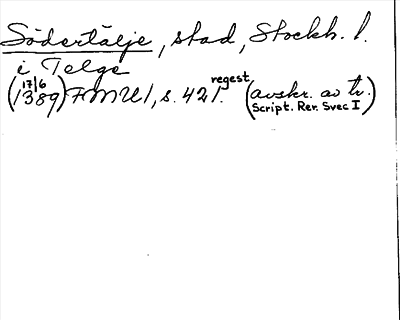 Södertälje, stad, Stockh. l.
i Telge
(17/6 1389) FMU 1, s. 421. regest (avskr. av tr. Script. Rer. Svec I)